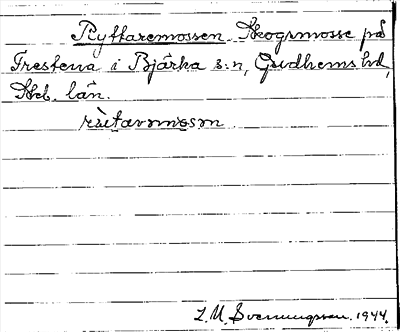 Ryttaremossen. Skogsmosse på
Trestena i Bjärka s:n, Gudhems hd,
Skb. län.
rùtavㅤmosㅤn
L. M. Svenungsson. 1944.